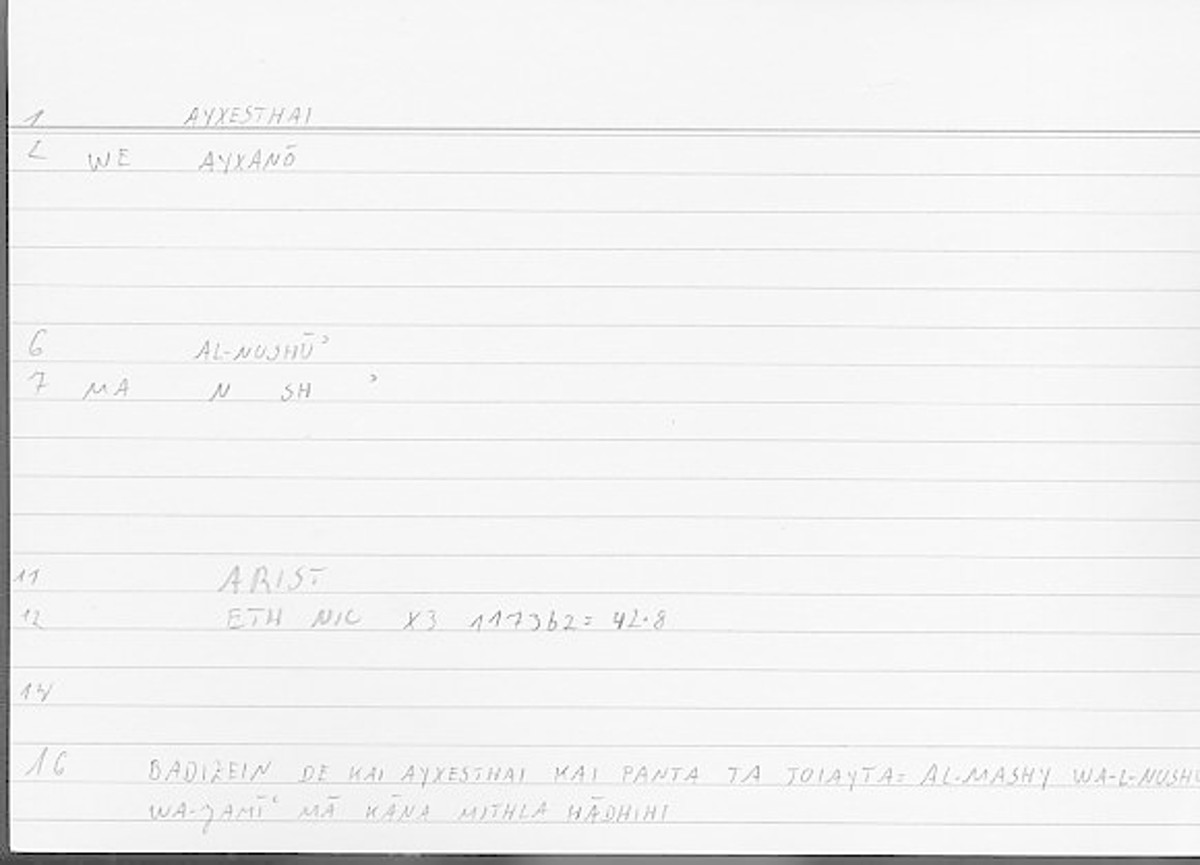 1 AYXESTHAI
2 WE AYXANŌ
6 AL-NUSHŪʾ
7 MA N SH ʾ
11 ARIST
12 ETH NIC X3 1173b2= 42.8
14
16 BADIZEIN DE KAI AYXESTHAI KAI PANTA TA TOIAYTA= AL-MASHY WA-L-NUSHŪ
WA-ǦAMĪʿ MĀ KĀNA MITHLA HĀDHIHI